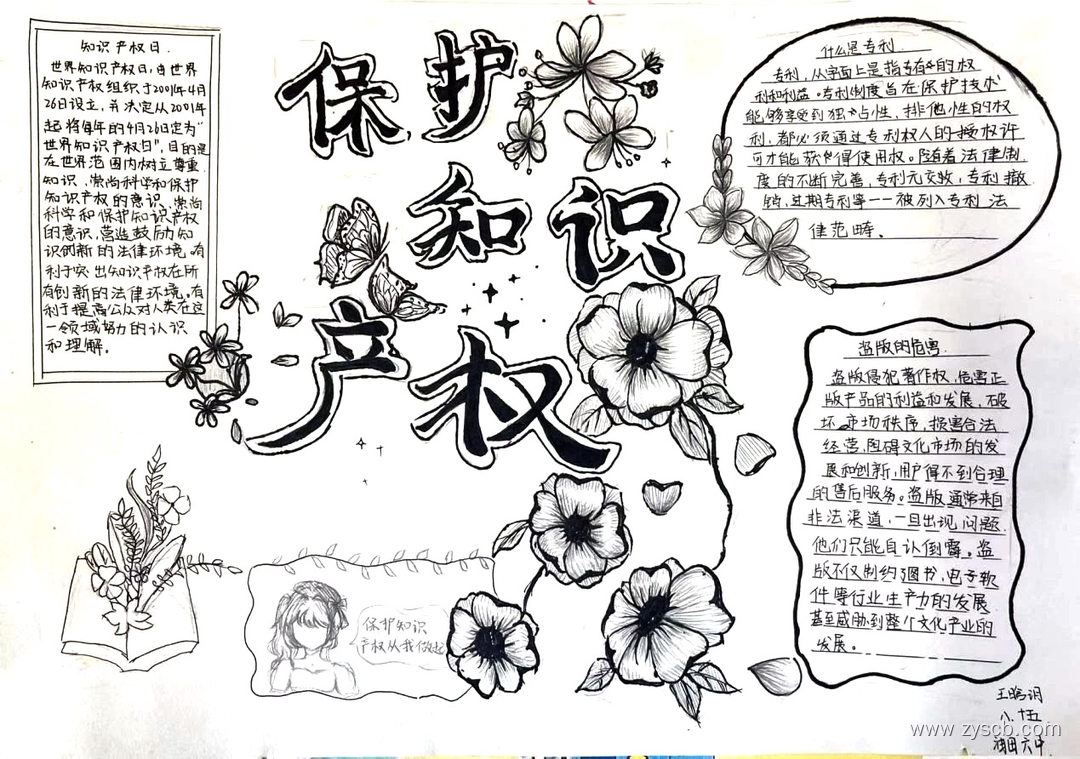 保护
知识
产权
知识产权日.
世界知识产权日,由世界
知识产权组织于2001年4月
26日设立,并决定从2001年
起将每年的4月26日定为“
世界知识产权日”,目的是
在世界范围内树立尊重
知识,崇尚科学和保护
知识产权的意识,崇尚
科学和保护知识产权
的意识,营造鼓励知
识创新的法律环境。有
利于突出知识产权在所
有创新的法律环境。有
利于提高公众对人类在这
一领域努力的认识
和理解。
什么是专利
专利,从字面上是指专有的权
利和利益。专利制度旨在保护技术
能够享受到独占性、排他性的权
利,都必须通过专利权人的授权许
可才能获得使用权。随着法律制
度的不断完善,专利无效,专利撤
销,过期专利等一一被列入专利法
律范畴、
盗版的危害
盗版侵犯著作权,危害正
版产品的利益和发展,破
坏市场秩序,损害合法
经营,阻碍文化市场的发
展和创新,用户得不到合理
的售后服务。盗版通常来自
非法渠道,一旦出现问题
他们只能自认倒霉。盗
版不仅制约了图书,电子软
件等行业生产力的发展
甚至威胁到整个文化产业的
发展。
保护知识
产权从我做起
八.十五
油田六中
www.zyscb.com